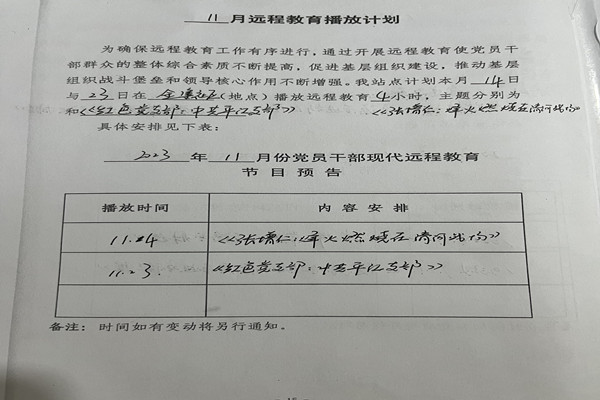 11 月远程教育播放计划
为确保远程教育工作有序进行，通过开展远程教育使党员干
部群众的整体综合素质不断提高，促进基层组织建设，推动基层
组织战斗堡垒和领导核心作用不断增强。我站点计划本月 14 日
与 23 日在 (地点）播放远程教育 4 小时，主题分别为
《张增仁：烽火燃烧在
和《红色党支部：中共平江支部》
具体安排见下表：
2023 年 11 月份党员干部现代远程教育
节目预告
播放时间 内容安排
《张增仁：烽火燃烧在
11.23. 《红色党支部：中共平江支部》
备注：时间如有变动将另行通知。